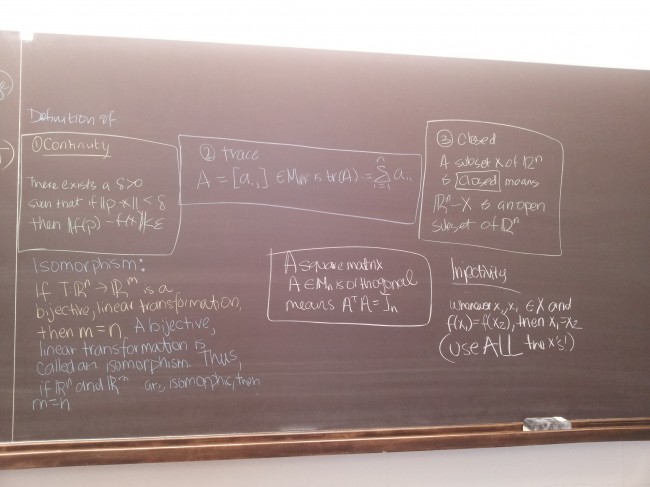 Definition of
① Continuity
There exists a δ>0
such that if ||p-x|| < δ
then ||f(p) - f(x)||<ε
② trace
A = [aᵢⱼ] ∈ Mₙ is tr(A) = Σⁿᵢ₌₁ aᵢᵢ
③ Closed
A subset X of ℝⁿ
is closed means
ℝⁿ-X is an open
subset of ℝⁿ
Isomorphism:
If T:ℝⁿ → ℝᵐ is a
bijective, linear transformation,
then m=n. A bijective,
linear transformation is
called an isomorphism. Thus,
if ℝⁿ and ℝᵐ are isomorphic, then
m=n
A square matrix
A ∈ Mₙ is orthogonal
means AᵀA = Iₙ
Injectivity
whenever x₁, x₂ ∈ X and
f(x₁) = f(x₂), then x₁=x₂
(use ALL the x's!)